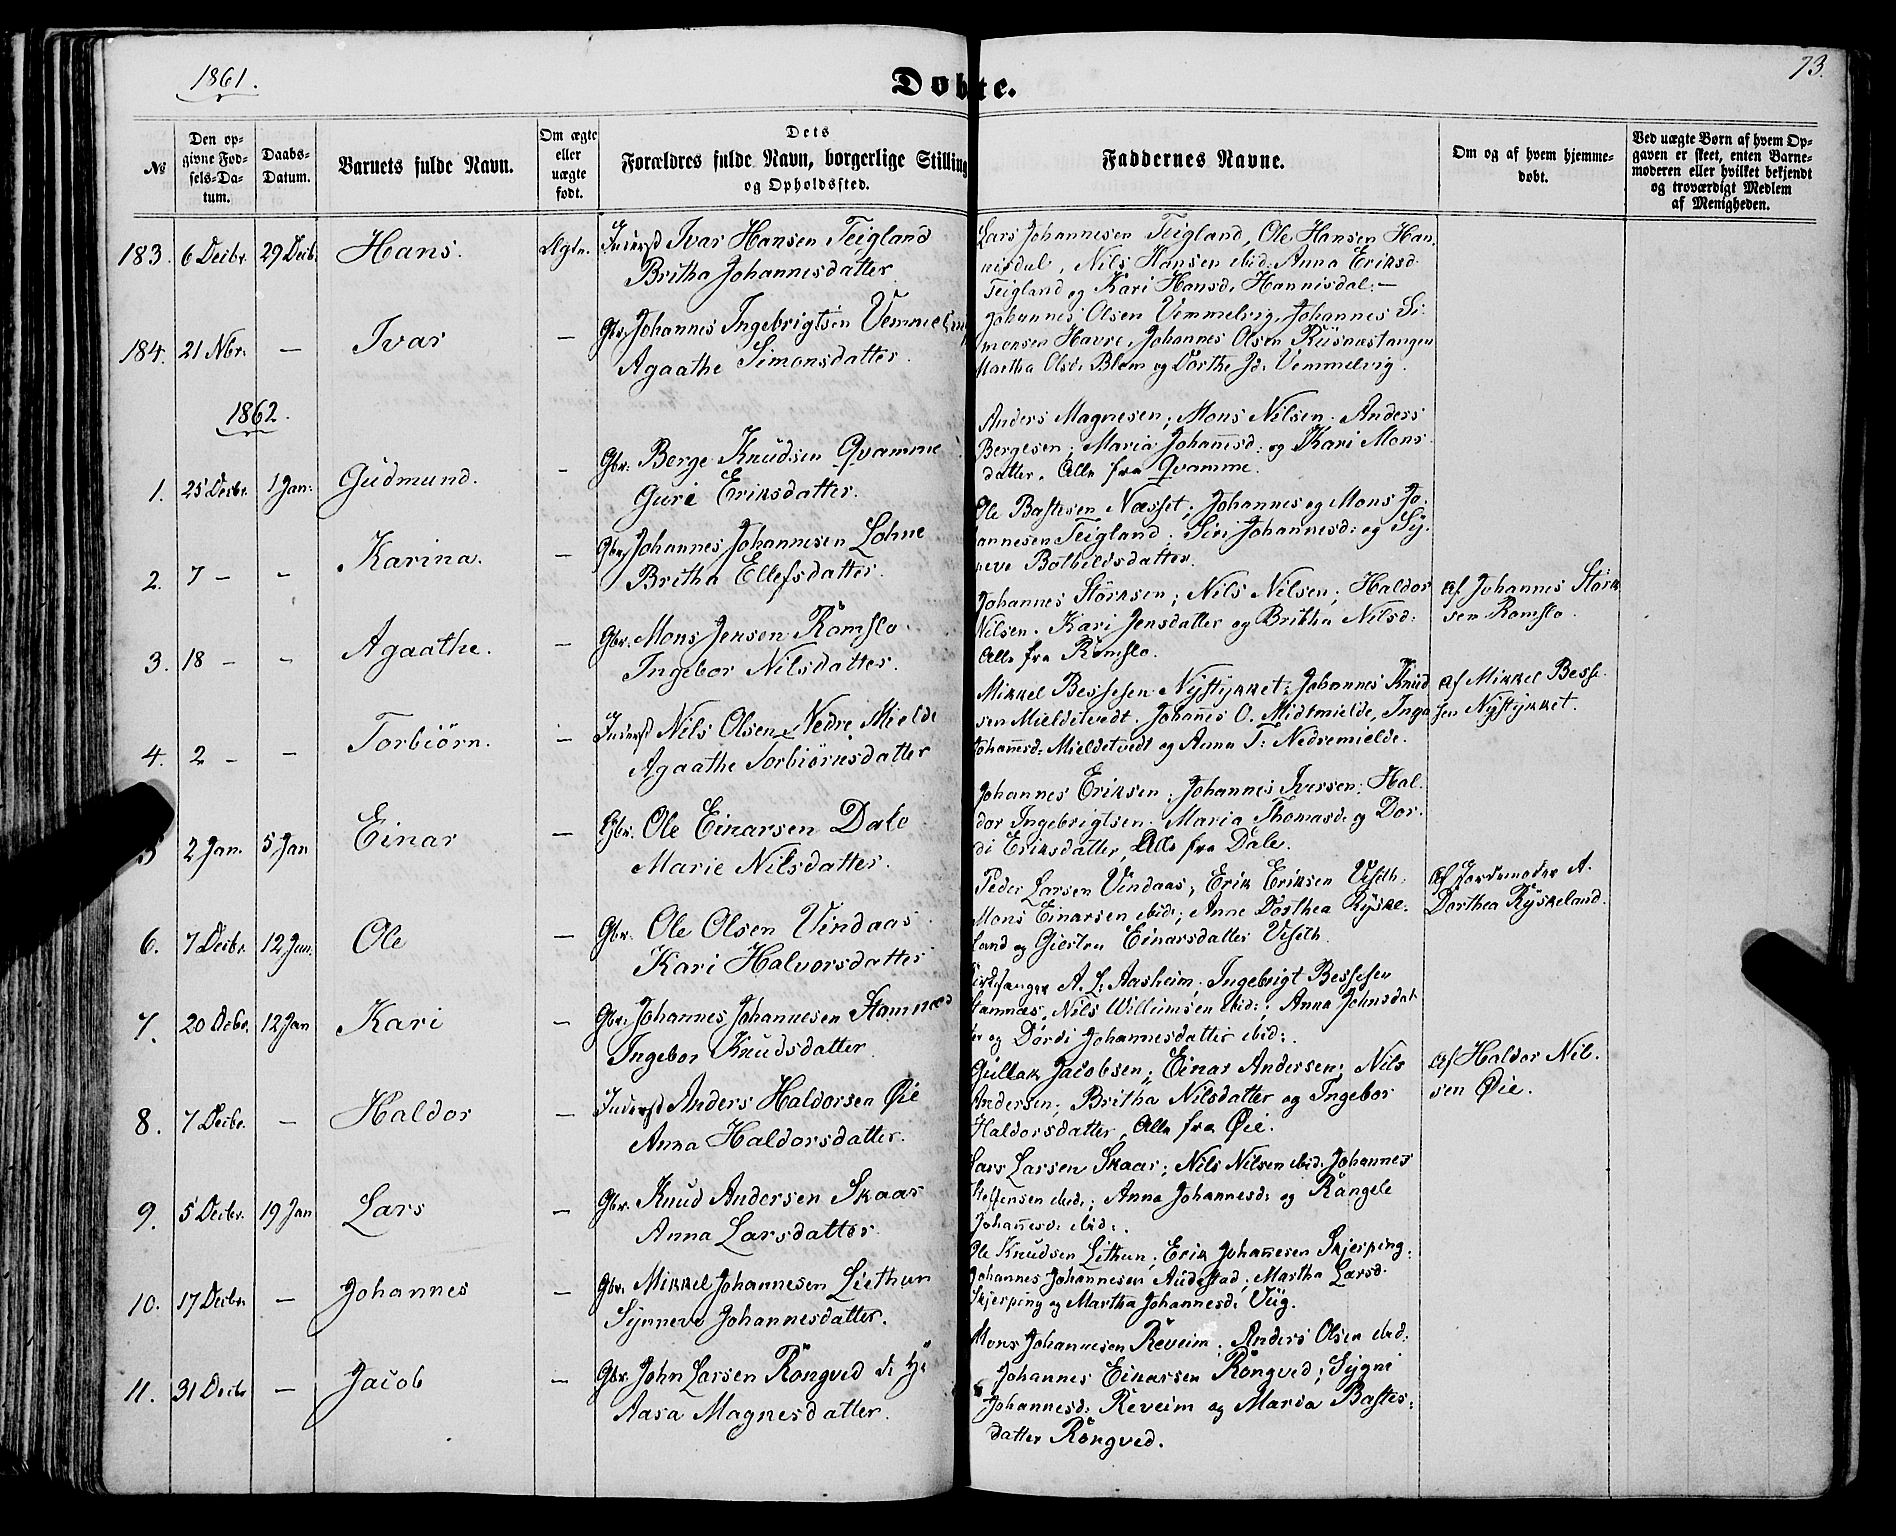 1861.
Døbte.
73.
No
Den op-
givne Fød-
sels-Da-
tum.
Daabs-
Datum.
Barnets fulde Navn.
Om ægte
eller
uægte
født.
Dets
Forældres fulde Navn, borgerlige Stilling
og Opholdssted.
Faddernes Navne.
Om og af hvem hjemme-
døbt.
Ved uægte Børn af hvem Op-
gaven er skeet, enten Barne-
moderen eller hvilket bekjendt
og troværdigt Medlem
af Menigheden.
183. 6 Decbr. 29 Decb. Hans. Ægte. Inderst Ivar Hansen Teigland
Britha Johannesdatter
Lars Johannesen Teigland, Ole Hansen Han-
nisdal, Nils Hansen ibid: Anna Eriksd.
Teigland og Kari Hansd: Hannisdal. —
184. 21 Nbr. — Ivar — Gbr. Johannes Ingebrigtsen Vemmelvig
Agaathe Simonsdatter.
Johannes Olsen Vemmelvig, Johannes Si-
monsen Havre, Johannes Olsen Riisnæstangen
Martha Olsd: Blom og Dorthe Jd: Vemmelvig.
1862.
1. 25 Decbr. 1 Jan: Gudmund. — Gbr. Berge Knudsen Qvamme
Guri Eriksdatter.
Anders Magnesen; Mons Nilsen. Anders
Bergesen; Maria Johannsd: og Kari Mons-
datter. Alle fra Qvamme.
2. 7 — - Karina. — Gbr. Johannes Johannesen Lohne
Britha Ellefsdatter.
Ole Bastesen Næsset; Johannes og Mons Jo-
hannesen Teigland; Siri Johannesd: og Sy-
neve Botheldsdatter.
3. 18 — - Agaathe. — Gbr. Mons Jensen Romslo.
Ingebor Nilsdatter.
Johannes Størksen; Nils Nilsen; Haldor
Nilsen. Kari Jensdatter og Britha Nilsd:
Alle fra Romslo.
Af Johannes Størk-
sen Romslo.
4. 2 — - Torbiørn. — Inderst Nils Olsen Nedre Mielde
Agaathe Torbiørnsdatter
Mikkel Bessesen Nystykket; Johannes Knud-
sen Mieldetvedt. Johanes O. Midtmielde, Inga
Johannsd: Mieldetvedt og Anna T: Nedremielde.
Af Mikkel Besse-
sen Nystykket.
5 2 Jan. 5 Jan Einar — Gbr. Ole Einarsen Dale
Marie Nilsdatter.
Johannes Eriksen; Johannes Iversen; Hal-
dor Ingebrigtsen. Maria Thomasd: og Dor-
di Eriksdatter, Alle fra Dale.
6. 7 Decbr. 12 Jan. Ole — Gbr. Ole Olsen Vindaas
Kari Halvorsdatter
Peder Larsen Vindaas; Erik Eriksen Veseth
Mons Einarsen ibid:; Anne Dorthea Ryske-
land og Giertru Einarsdatter Veseth.
Af Jordemoder A.
Dorthea Ryskeland.
7. 20 Decbr. 12 Jan Kari — Gbr. Johannes Johannesen Stamnæs
Ingebor Knudsdatter.
Kirkesanger A. L. Aasheim; Ingebrigt Bessesen
Stamnæs, Nils Willumsen ibid:; Anna Johnsdat-
ter og Dordi Johannesdatter ibid:.
8. 7 Decbr. — Haldor — Inderst Anders Haldorsen Øie
Anna Haldorsdatter.
Gullak Jacobsen; Einar Andersen; Nils
Andersen; Britha Nilsdatter og Ingebor
Haldorsdatter, Alle fra Øie.
Af Haldor Nil-
sen Øie.
9. 5 Decbr. 19 Jan Lars — Gbr. Knud Andersen Skaar
Anna Larsdatter
Lars Larsen Skaar; Nils Nilsen ibid: Johannes
Steffensen ibid:; Anna Johannesd: og Rangele
Johannesd: ibid:.
10. 17 Decbr. — Johannes — Gbr. Mikkel Johannesen Liethun
Synneve Johannesdatter.
Ole Knudsen Lithun; Erik Johannesen Skjerping;
Johannes Johannesen Audestad; Martha Larsd.
Skjerping og Martha Johannesd: Viig.
11. 31 Decbr — Jacob — Gbr. John Larsen Rongved
Aasa Magnesdatter.
Mons Johannesen Reveim; Anders Olsen ibid:
Johannes Einarsen Rongved; Sygni
Johannesd: Reveim og Marda Bastes-
datter Rongved.